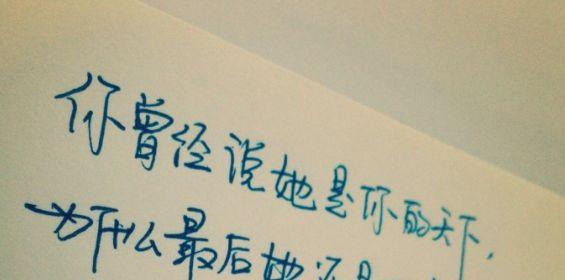 你曾经说她是你的天下，
为什么最后她还是